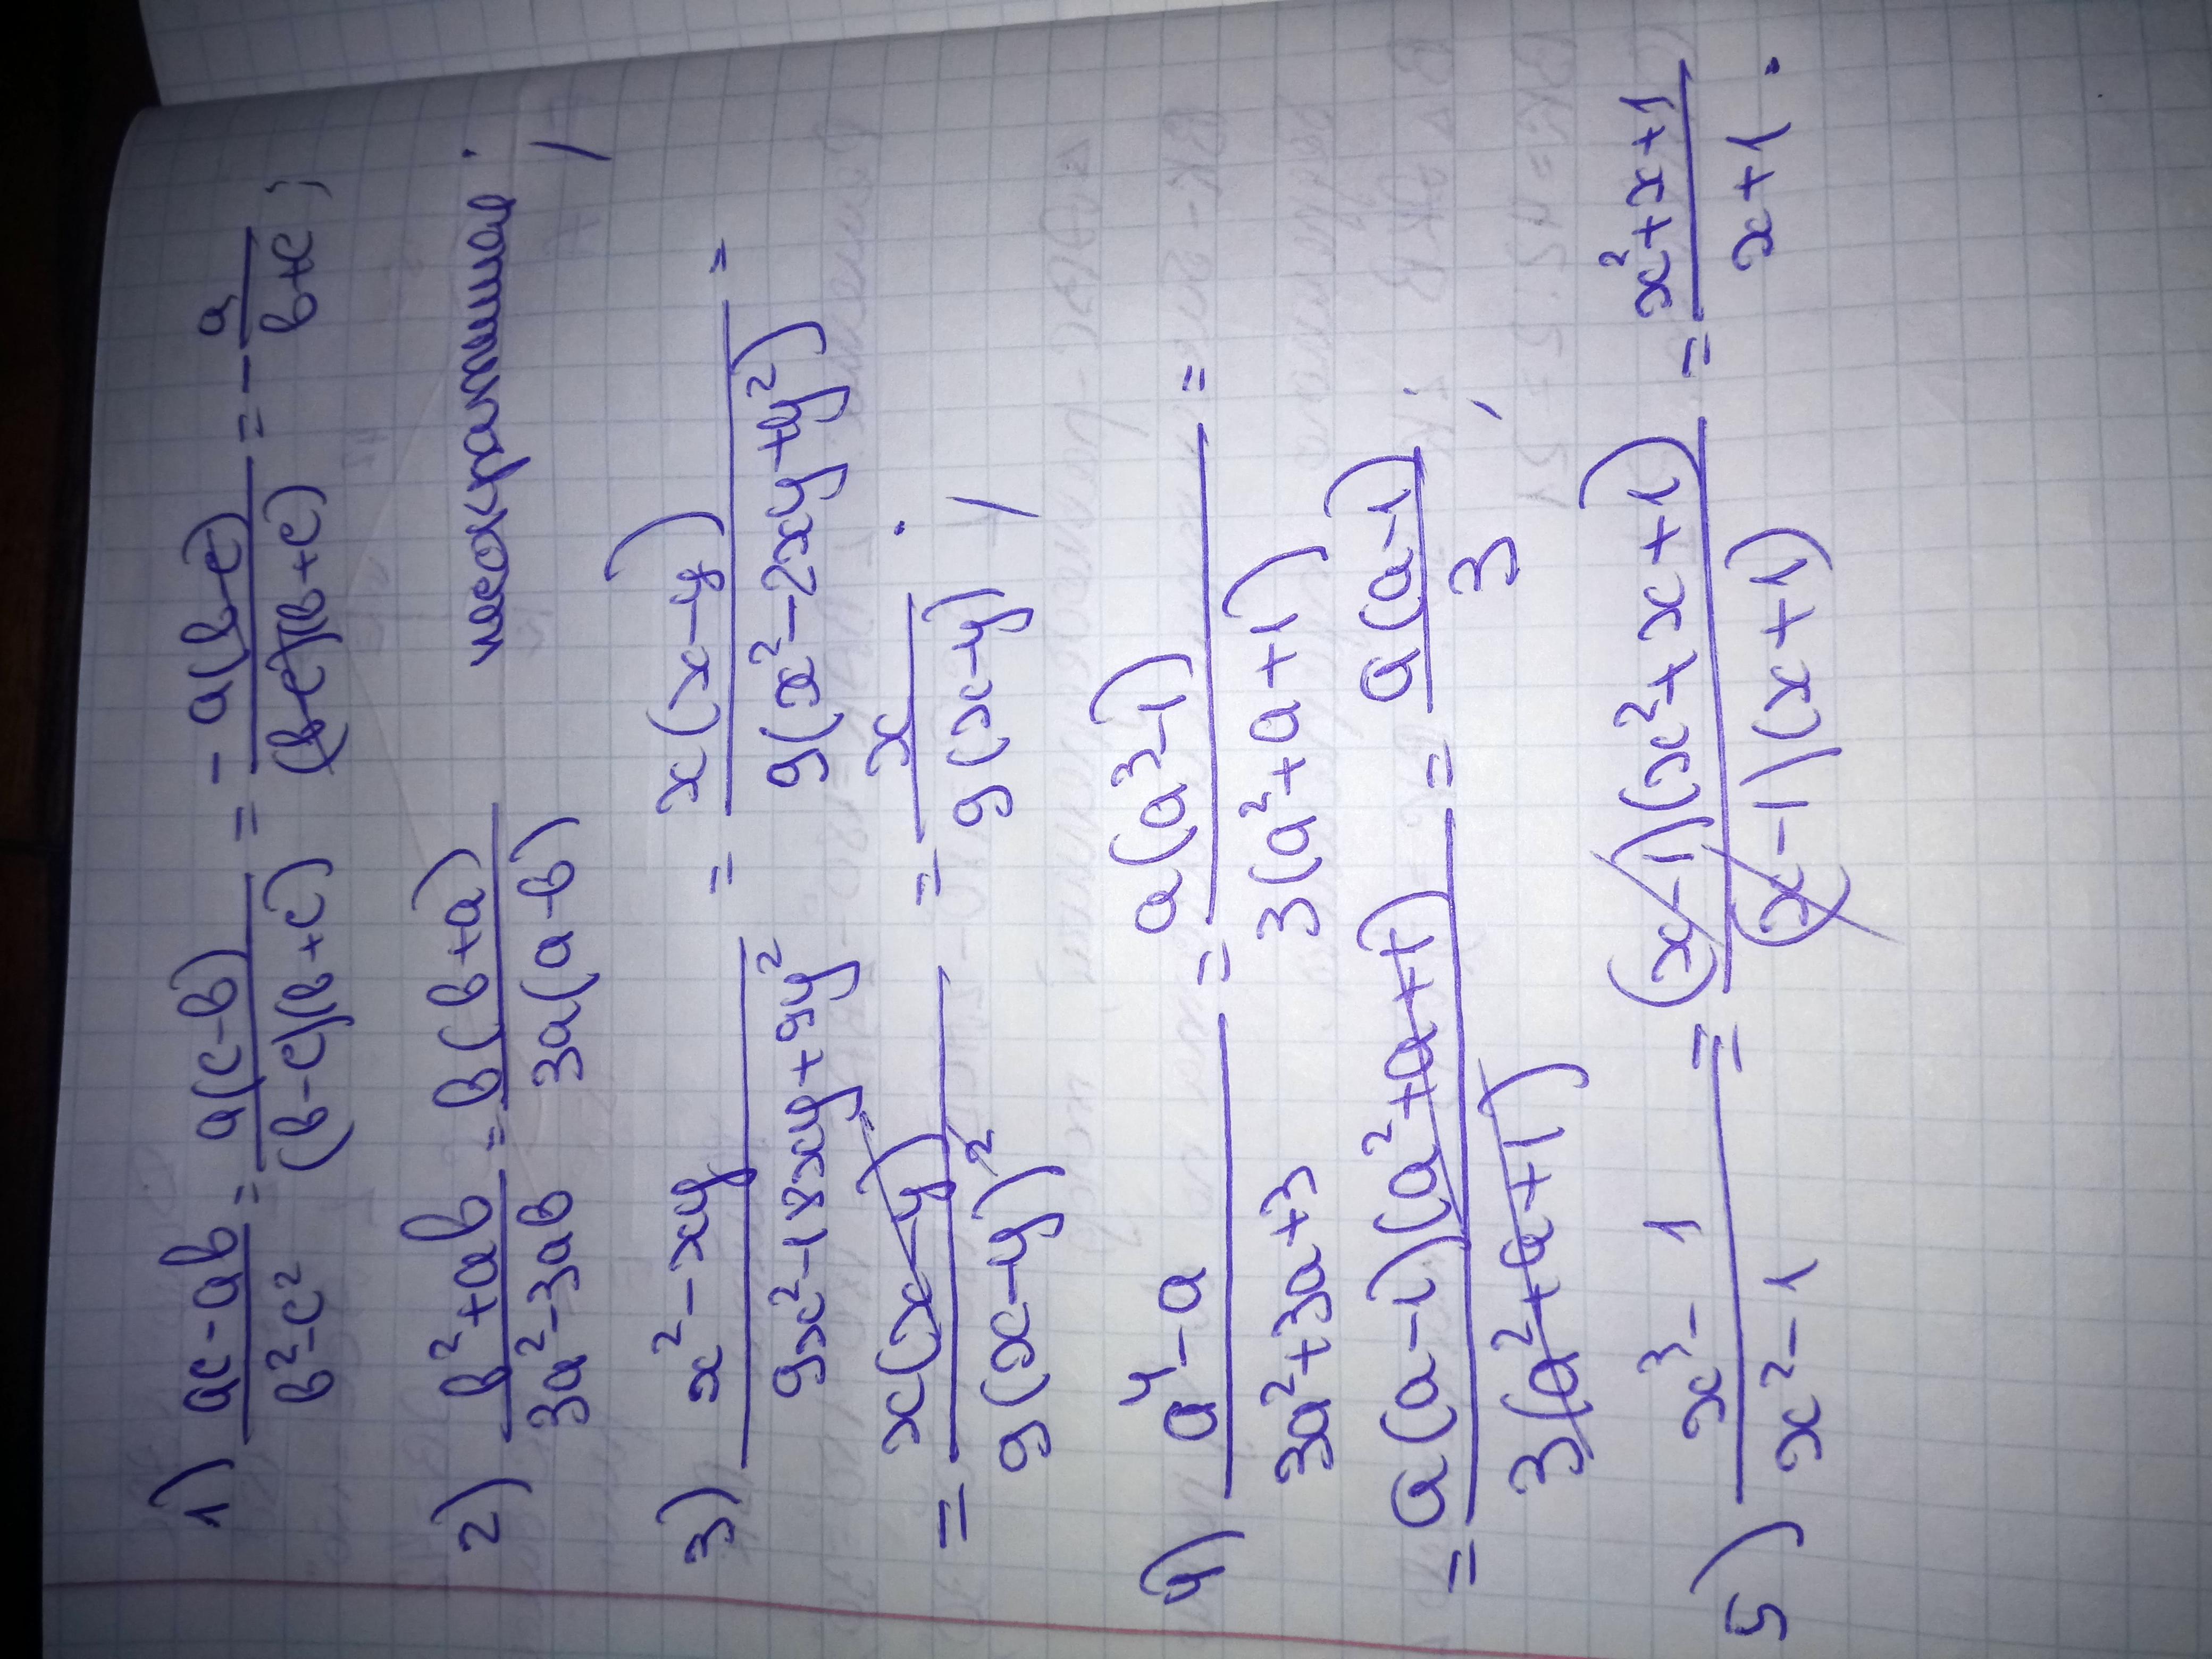 1) (ac-ab)/(b²-c²) = a(c-b)/((b-c)(b+c)) = -a(b-c)/((b-c)(b+c)) = -a/(b+c);
2) (b²+ab)/(3a²-3ab) = b(b+a)/(3a(a-b)) несократимая;
3) (x²-xy)/(9x²-18xy+9y²) = x(x-y)/(9(x²-2xy+y²)) =
= x(x-y)/(9(x-y)²) = x/(9(x-y));
4) (a⁴-a)/(3a²+3a+3) = a(a³-1)/(3(a²+a+1)) =
= a(a-1)(a²+a+1)/(3(a²+a+1)) = a(a-1)/3;
5) (x³-1)/(x²-1) = (x-1)(x²+x+1)/((x-1)(x+1)) = (x²+x+1)/(x+1).